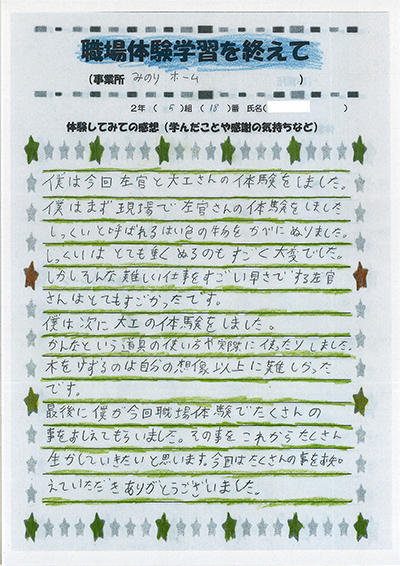 職場体験学習を終えて
(事業所 みのり ホーム )
2年 ( 5 )組 ( 18 )番 氏名( )
体験してみての感想 (学んだことや感謝の気持ちなど)
僕は今回左官と大工さんの体験をしました。
僕はまず現場で左官さんの体験をしました
しっくいと呼ばれるはい色の物をかべにぬりました。
しっくいは とても重く ぬるのもすごく大変でした。
しかしそんな難しい仕事をすごい早さでする左官
さんはとてもすごかったです。
僕は次に大工の体験をしました。
かんなという道具の使い方や実際に使ったりしました。
木をけずるのは自分の想像以上に難しかった
です。
最後に僕が今回職場体験でたくさんの
事をおしえてもらいました。その事をこれからたくさん
生かしていきたいと思います。今回はたくさんの事をお
えていただきありがとうございました。